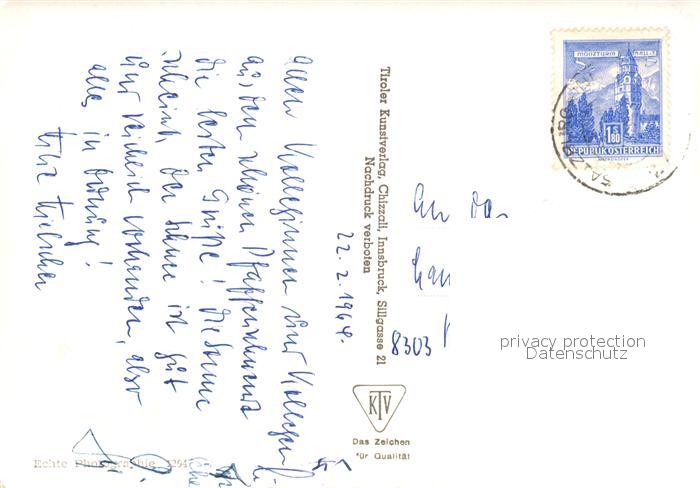 allen Kolleginnen und Kollegen
aus dem schönen Pfaffenschwendt
die besten Grüße! Die Sonne
scheint, der Schnee ist gut
und reichlich vorhanden, also
alles in Ordnung!
22.2.1964.
Tiroler Kunstverlag, Chizzali, Innsbruck, Sillgasse 21
Nachdruck verboten
MÜNZTURM
1.80
REPUBLIK ÖSTERREICH
SALZBURG
An das
8303
privacy protection
Datenschutz
KTV
Das Zeichen
für Qualität
Echte Photographie